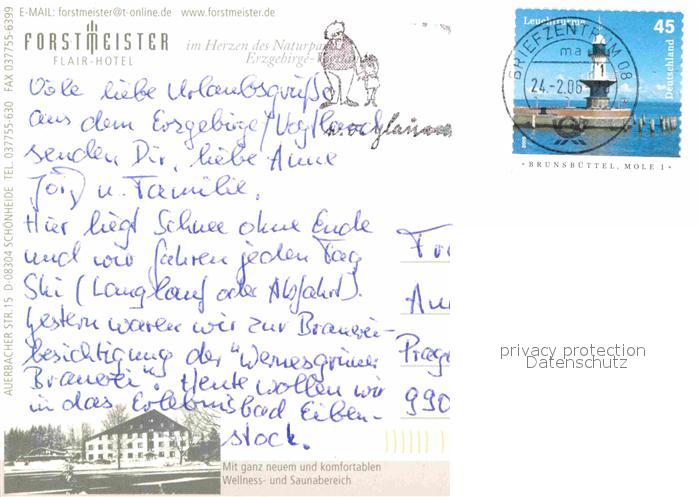 E-MAIL: forstmeister@t-online.de www.forstmeister.de
FORSTMEISTER
FLAIR-HOTEL
im Herzen des Naturpa
Erzgebirge
AUERBACHER STR.15 D-08304 SCHÖNHEIDE TEL. 037755-630 FAX 037755-6399
Viele liebe Urlaubsgrüße
aus dem Erzgebirge/Vogtland
senden Dir, liebe Anne
Jörg u. Familie.
Hier liegt Schnee ohne Ende
und wir fahren jeden Tag
Ski (Langlauf oder Abfahrt).
Gestern waren wir zur Brauerei-
besichtigung der "Wernesgrüner
Brauerei". Heute wollen wir
in das Erlebnisbad Eiben-
stock.
Mit ganz neuem und komfortablen
Wellness- und Saunabereich
Leuchttürme
45
Deutschland
BRIEFZENTRUM 08
ma
24.-2.06
BRUNSBÜTTEL, MOLE 1
Fr
An
Prage
990
privacy protection
Datenschutz